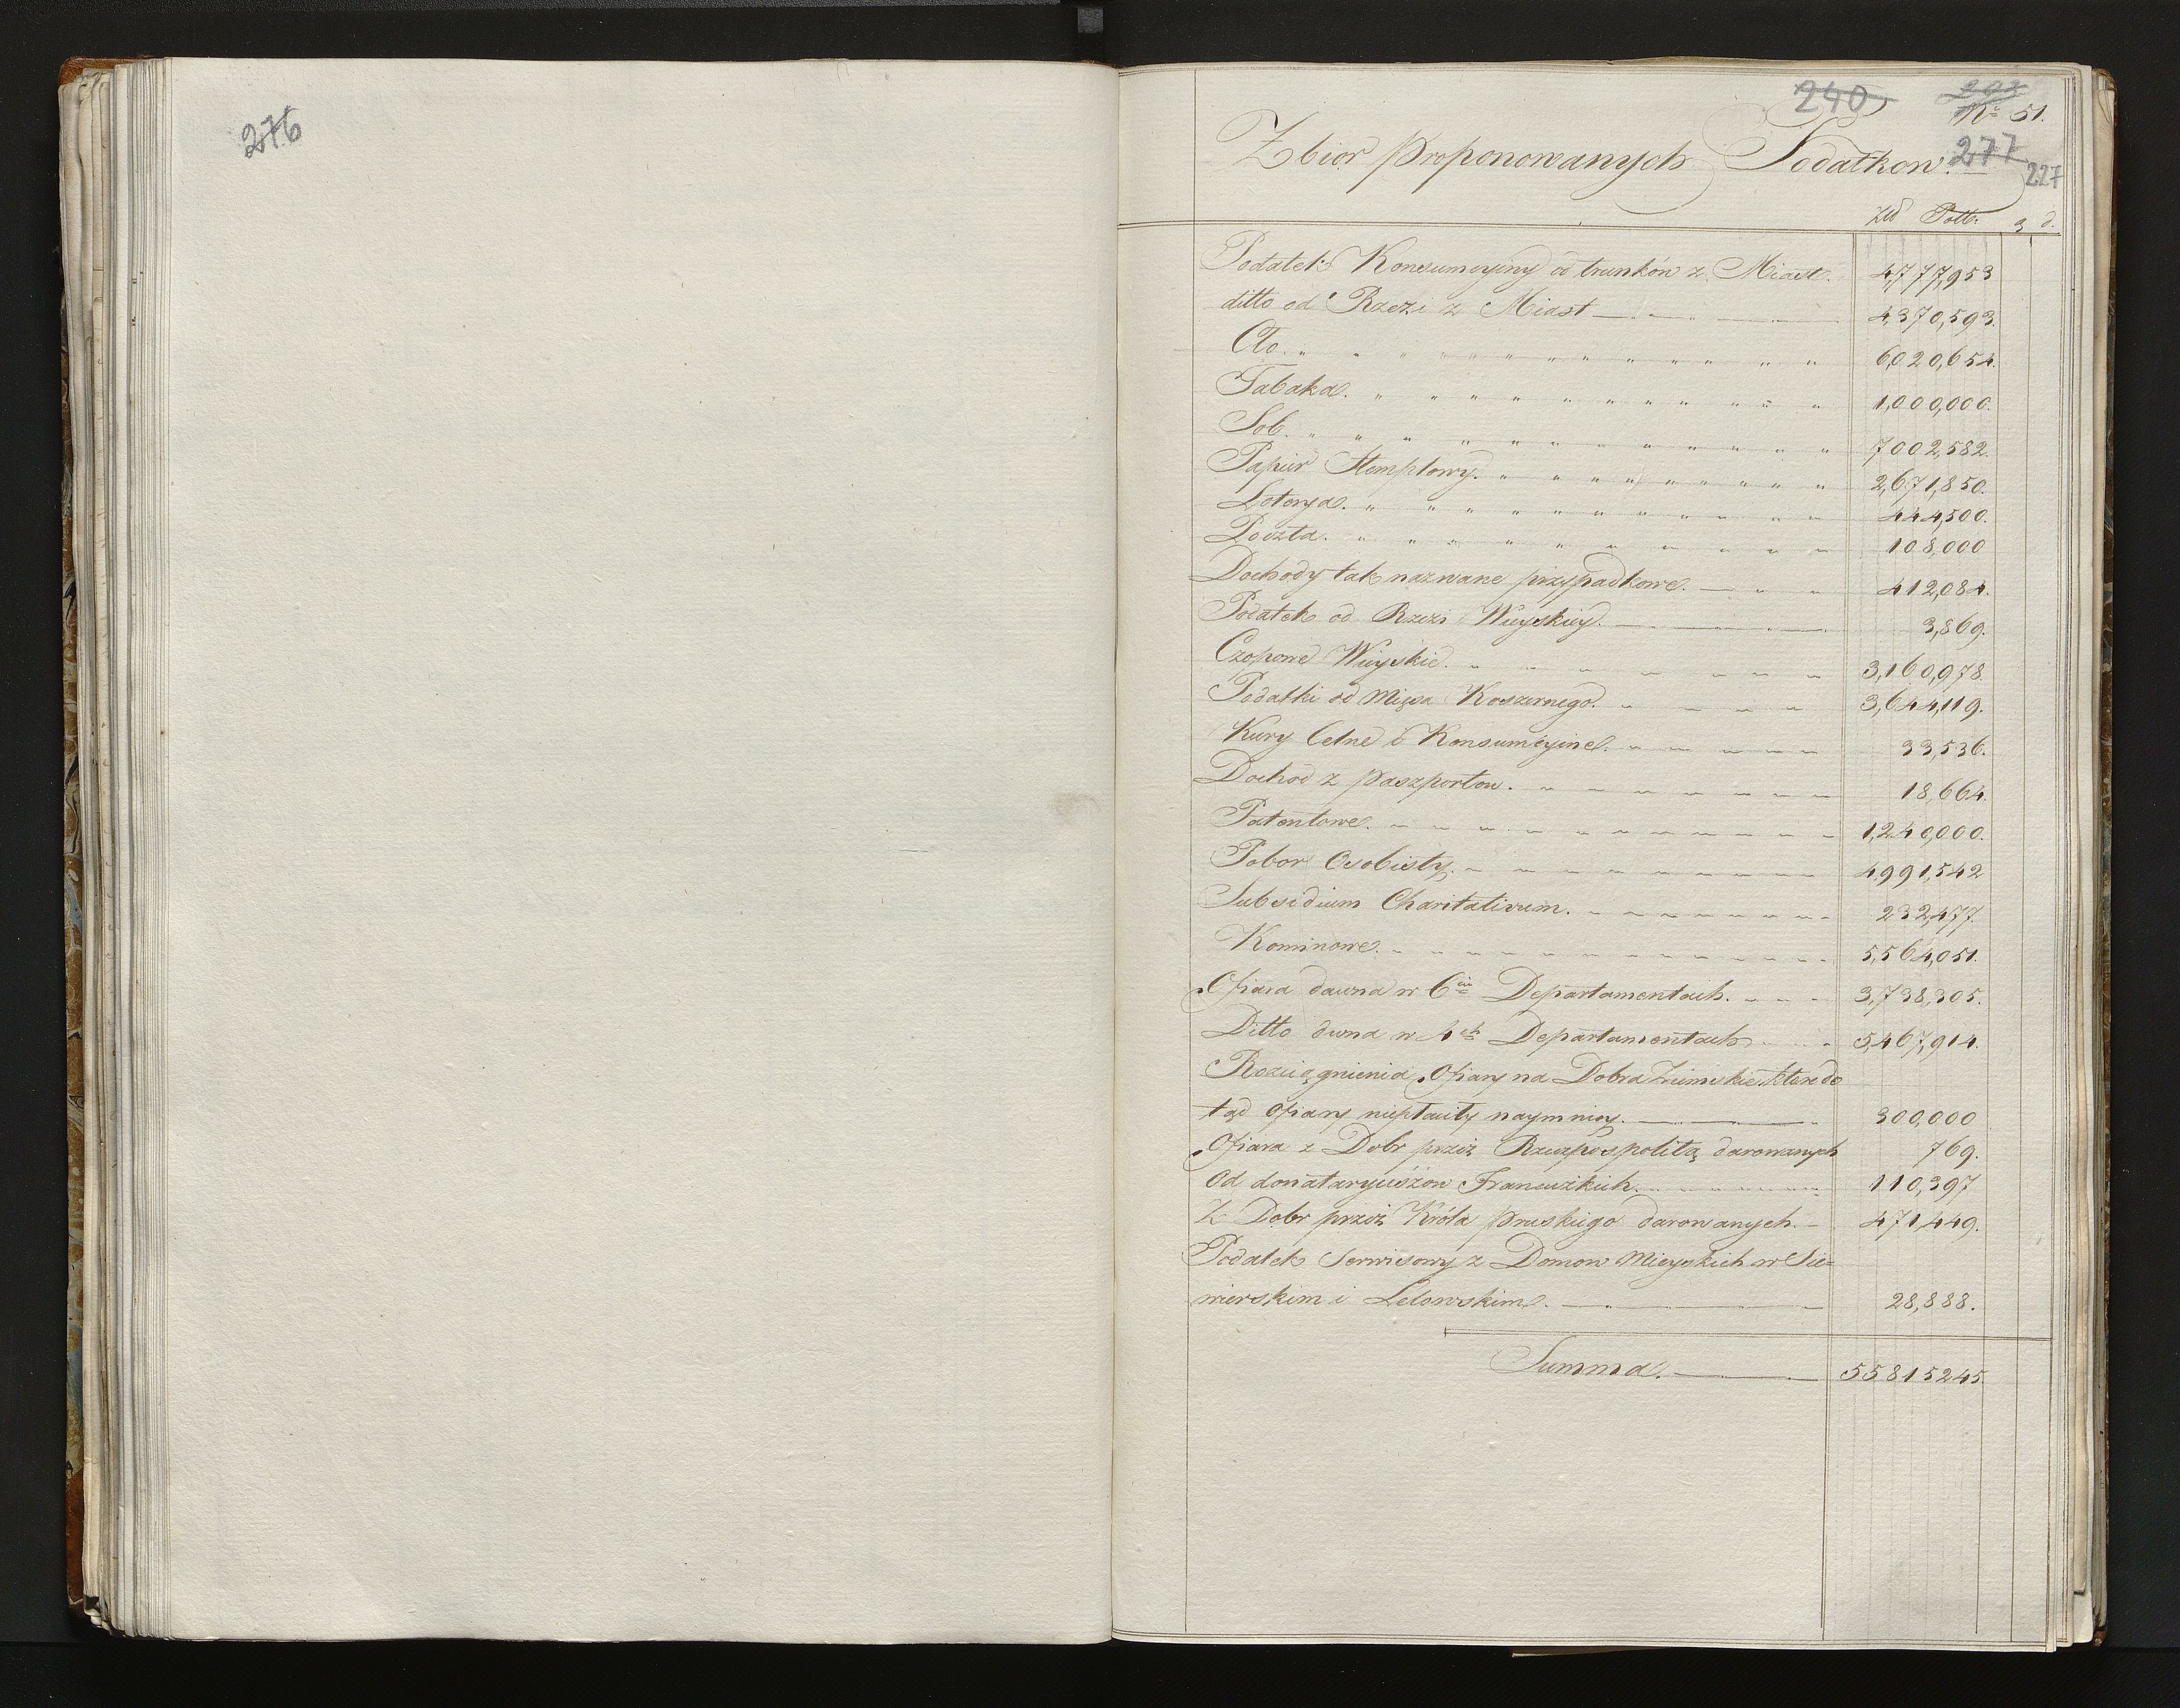 276
240
No 51.
277
227
Zbior proponowanych Podatkow.
Zło Poll: g d.
Podatek Konsumcyiny od trunkòw z Miast. 4,777,953
ditto od Rzezi z Miast 4,370,593.
Cło. 6,020,654.
Tabaka. 1,000,000.
Sol. 7002,582.
Papier Stemplowy. 2,671,850.
Loterya. 444,500.
Poczta. 108,000
Dochody tak nazwane przypadkowe. 412,084.
Podatek od Rzezi Wieyskiey. 3,869.
Czopowe Wieyskie. 3,160,978.
Podatki od Mięsa Koszernego. 3,644,119.
Kary Celne i Konsumcyine. 33,536.
Dochod z paszportow. 18,664.
Patentowe. 1,240,000.
Pobor Osobisty. 4,991,542
Subsidium Charitativum. 232,477.
Kominowe. 5,564,051.
Ofiara dawna w 6ciu Departamentach. 3,738,305.
Ditto dawna w 4ch Departamentach 5,467,914.
Rozciągnienia Ofiary na Dobra Ziemskie które do
tąd ofiary niepłaciły naymniey. 300,000
Ofiara z Dobr przez Rzeczpospolitą darowanych 769.
Od donataryuszow Francuzkich. 110,397
Z Dobr przez Króla Pruskiego darowanych. 471,449.
Podatek Serwisowy z Domow Mieyskich w Sie=
wierskim i Lelowskim. 28,888.
Summa. 55815245